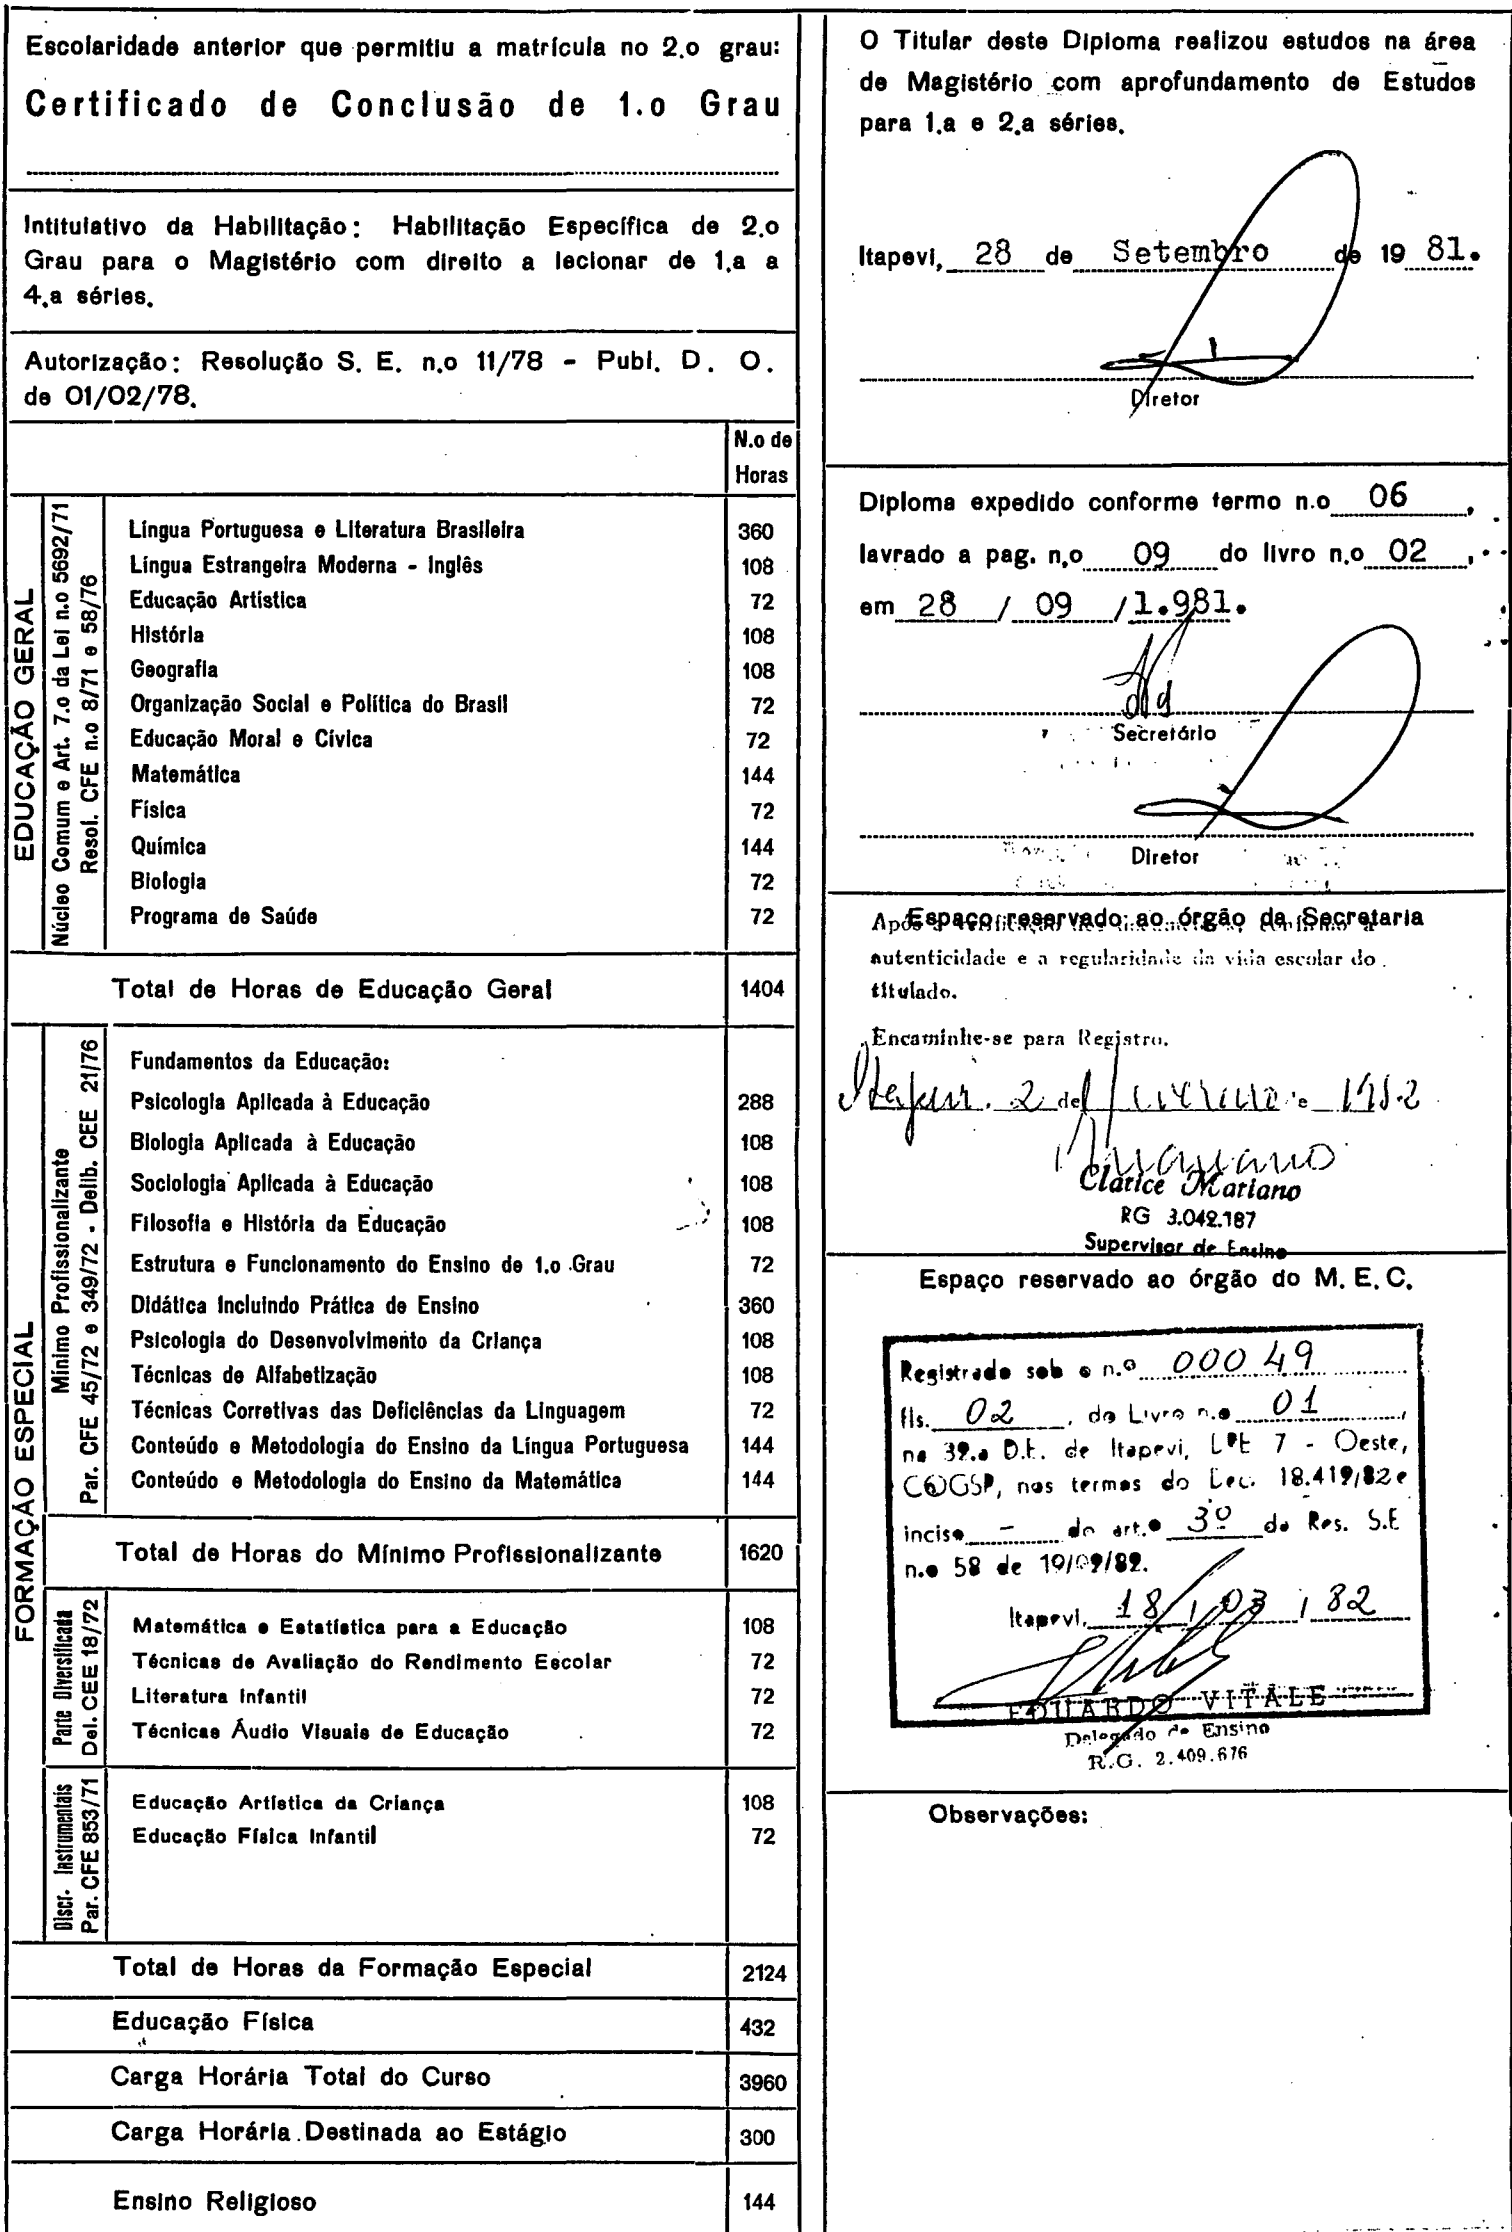 Escolaridade anterior que permitiu a matrícula no 2.o grau:
Certificado de Conclusão de 1.o Grau
Intitulativo da Habilitação: Habilitação Específica de 2.o
Grau para o Magistério com direito a lecionar de 1.a a
4.a séries.
Autorização: Resolução S. E. n.o 11/78 - Publ. D. O.
de 01/02/78.
N.o de
Horas
EDUCAÇÃO GERAL
Núcleo Comum e Art. 7.o da Lei n.o 5692/71
Resol. CFE n.o 8/71 e 58/76
Língua Portuguesa e Literatura Brasileira 360
Língua Estrangeira Moderna - Inglês 108
Educação Artística 72
História 108
Geografia 108
Organização Social e Política do Brasil 72
Educação Moral e Cívica 72
Matemática 144
Física 72
Química 144
Biologia 72
Programa de Saúde 72
Total de Horas de Educação Geral 1404
FORMAÇÃO ESPECIAL
Mínimo Profissionalizante
Par. CFE 45/72 e 349/72 - Delib. CEE 21/76
Fundamentos da Educação:
Psicologia Aplicada à Educação 288
Biologia Aplicada à Educação 108
Sociologia Aplicada à Educação 108
Filosofia e História da Educação 108
Estrutura e Funcionamento do Ensino de 1.o Grau 72
Didática Incluindo Prática de Ensino 360
Psicologia do Desenvolvimento da Criança 108
Técnicas de Alfabetização 108
Técnicas Corretivas das Deficiências da Linguagem 72
Conteúdo e Metodologia do Ensino da Língua Portuguesa 144
Conteúdo e Metodologia do Ensino da Matemática 144
Total de Horas do Mínimo Profissionalizante 1620
Parte Diversificada
Del. CEE 18/72
Matemática e Estatística para a Educação 108
Técnicas de Avaliação do Rendimento Escolar 72
Literatura Infantil 72
Técnicas Áudio Visuais de Educação 72
Discr. Instrumentais
Par. CFE 853/71
Educação Artística da Criança 108
Educação Física Infantil 72
Total de Horas da Formação Especial 2124
Educação Física 432
Carga Horária Total do Curso 3960
Carga Horária Destinada ao Estágio 300
Ensino Religioso 144
O Titular deste Diploma realizou estudos na área
de Magistério com aprofundamento de Estudos
para 1.a e 2.a séries.
Itapevi, 28 de Setembro de 19 81.
Diretor
Diploma expedido conforme termo n.o 06,
lavrado a pag. n.o 09 do livro n.o 02,
em 28 / 09 / 1.981.
Secretário
Diretor
Espaço reservado ao órgão da Secretaria
Após a
autenticidade e a regularidade da vida escolar do
titulado.
Encaminhe-se para Registro.
2 de
Clarice Mariano
RG 3.042.187
Supervisor de Ensino
Espaço reservado ao órgão do M. E. C.
Registrado sob o n.o 00049
fls. 02, do Livro n.o 01,
na 32.a D.E. de Itapevi, 7 - Oeste,
COGSP, nos termos do Dec. 18.419/82 e
inciso - do art.o 3º da Res. S.E
n.o 58 de 19/02/82.
Itapevi, 18 / 03 / 82
EDUARDO VITALE
Delegado de Ensino
R.G. 2.409.676
Observações: